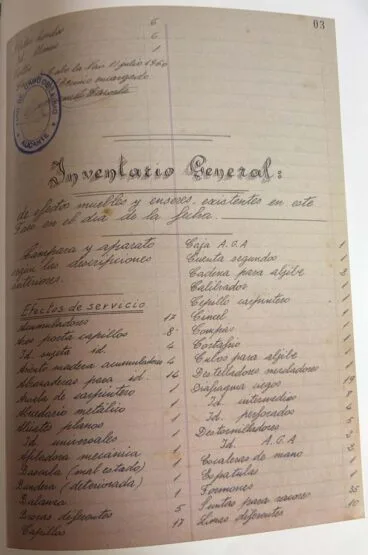 03
6
6
1
Cabo la Nao 11 julio 1960
El técnico encargado
Inventario General:
de efectos muebles y enseres, existentes en este
Faro en el día de la fecha.
Lámpara y aparato
según las descripciones
anteriores.
Efectos de servicio
Acumuladores 17
Aro porta capillos 8
Id. sujeta id. 4
Asiento madera acumuladores 4
Abrazaderas para id. 14
Azuela de carpintero 1
Alicates planos 1
Id. universales 1
mecánica 1
Bascula (mal estado) 1
Bandera (deteriorada) 1
Balanza 1
Brocas diferentes 5
Capillos 17
Caja A.G.A 1
Cuenta segundos 1
Cadena para algibe 2
Calibrador 1
Cepillo carpintero 1
Cincel 1
Compás 1
Cortafrio 1
Cubos para algibe
Destelladores mezcladores
Diafragma ciegos 19
Id. intermedios
Id. perforados
Destornilladores
Id. A.G.A
Escaleras de mano
Espátulas
Formones
Juntas para 35
Limas diferentes 10